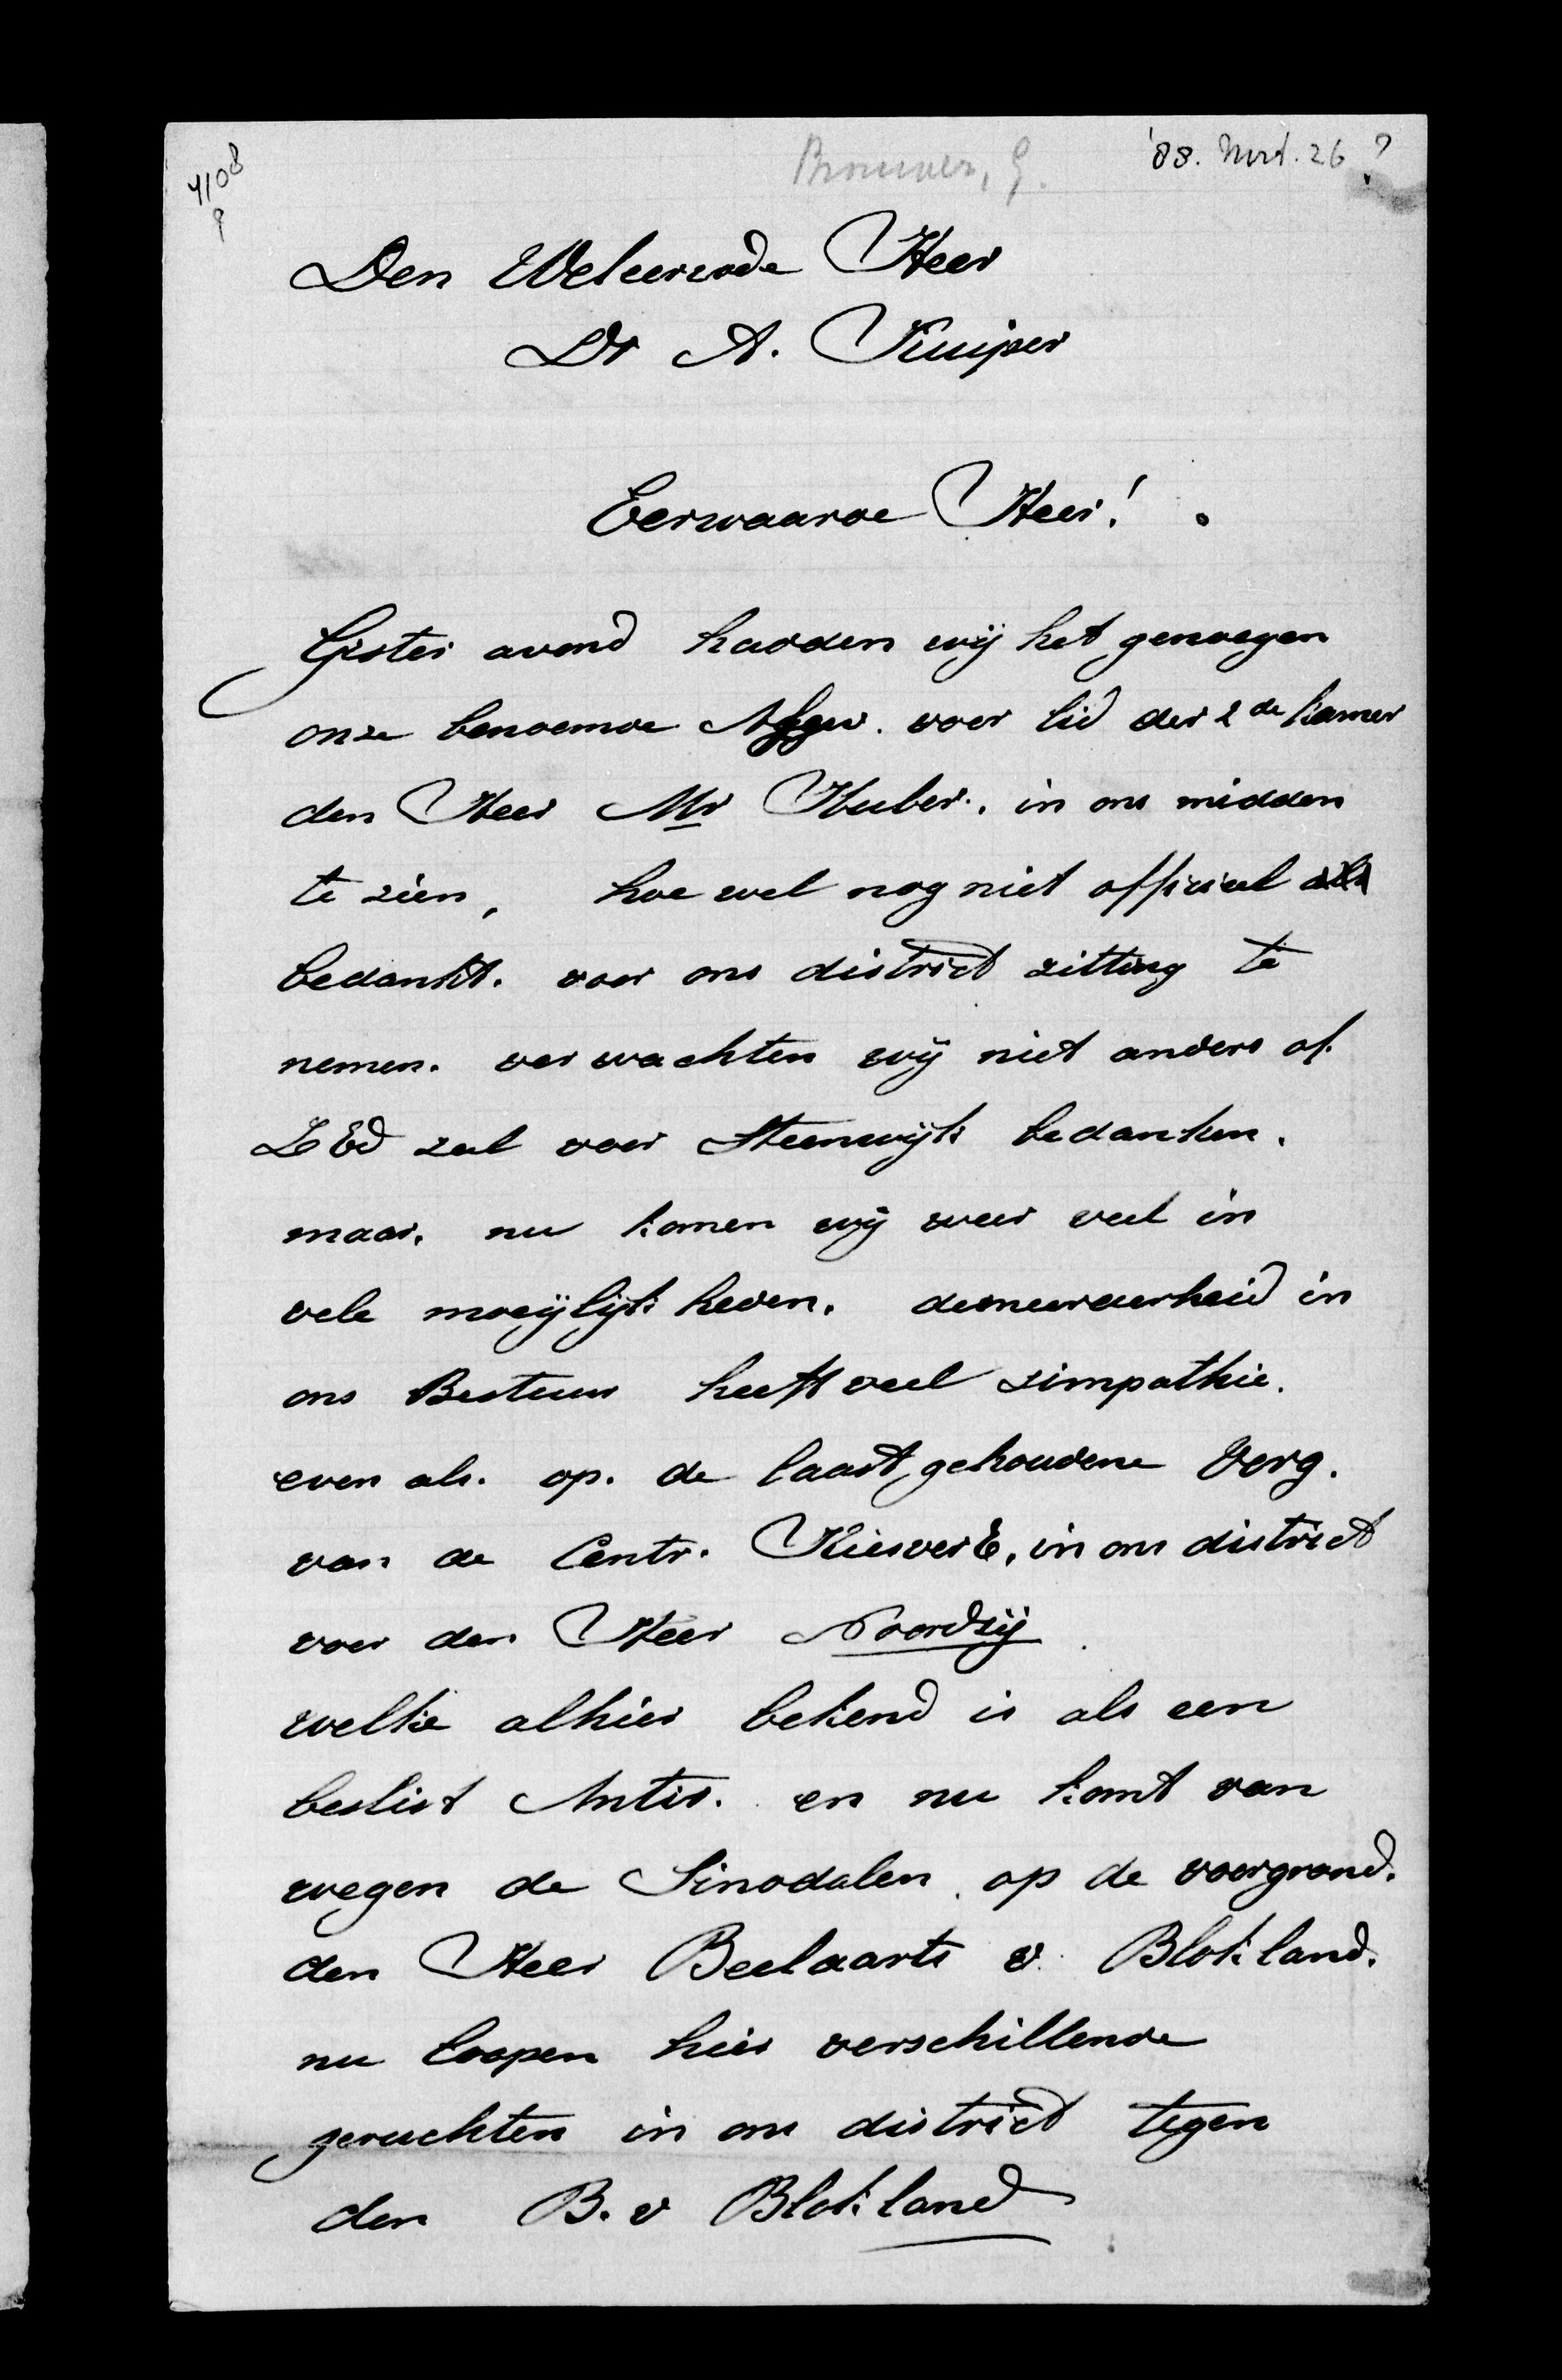 4108
?
Brouwer, G.
'88. Mrt. 26?
Den Weleerwde Heer
Dr A. Kuijper
Eerwaarde Heer!
Gister avond hadden wij het genoegen
onze benoemde Afgev. voor lid der 2de kamer
den Heer Mr Huber. in ons midden
te zien, hoe wel nog niet officieel
bedankt. voor ons district zitting te
nemen. ver wachten wij niet anders of
ZEd zal voor Steenwijk bedanken.
maar, nu komen wij weer veel in
vele moeijlijk heden. de meerderheid in
ons Bestuur heeft veel zimpathie.
even als. op. de laast gehoudene Verg.
van de Centr. Kiesver E, in ons district
voor den Heer Noordzij
welke alhier bekend is als een
beslist Antir. en nu komt van
wegen de Sinodalen. op de voorgrond.
den Heer Beelaarts v. Blokland.
nu loopen hier verschillende
geruchten in ons district tegen
den B. v Blokland